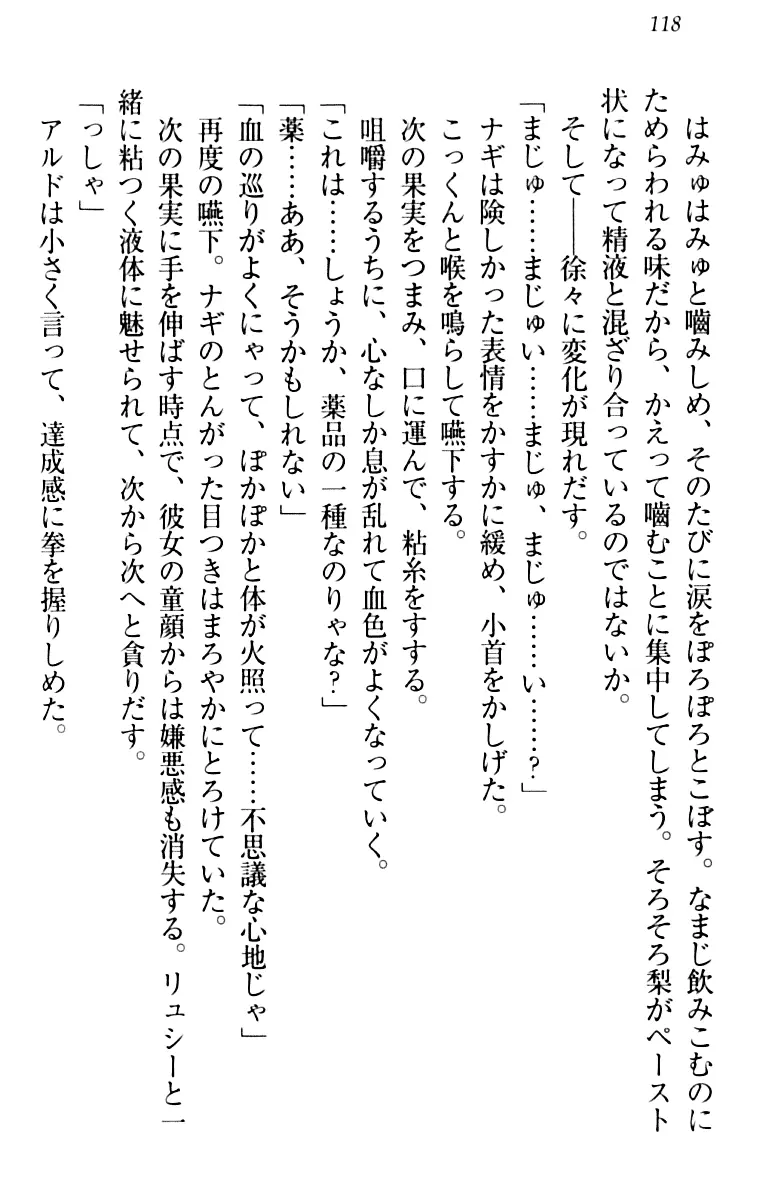 118
はみゅはみゅと嚙みしめ、そのたびに涙をぽろぽろとこぼす。なまじ飲みこむのに
ためらわれる味だから、かえって嚙むことに集中してしまう。そろそろ梨がペースト
状になって精液と混ざり合っているのではないか。
そして――徐々に変化が現れだす。
「まじゅ……まじゅい……まじゅ、まじゅ……い……？」
ナギは険しかった表情をかすかに緩め、小首をかしげた。
こっくんと喉を鳴らして嚥下する。
次の果実をつまみ、口に運んで、粘糸をすする。
咀嚼するうちに、心なしか息が乱れて血色がよくなっていく。
「これは……しょうか、薬品の一種なのりゃな？」
「薬……ああ、そうかもしれない」
「血の巡りがよくにゃって、ぽかぽかと体が火照って……不思議な心地じゃ」
再度の嚥下。ナギのとんがった目つきはまろやかにとろけていた。
次の果実に手を伸ばす時点で、彼女の童顔からは嫌悪感も消失する。リュシーと一
緒に粘つく液体に魅せられて、次から次へと貪りだす。
「っしゃ」
アルドは小さく言って、達成感に拳を握りしめた。